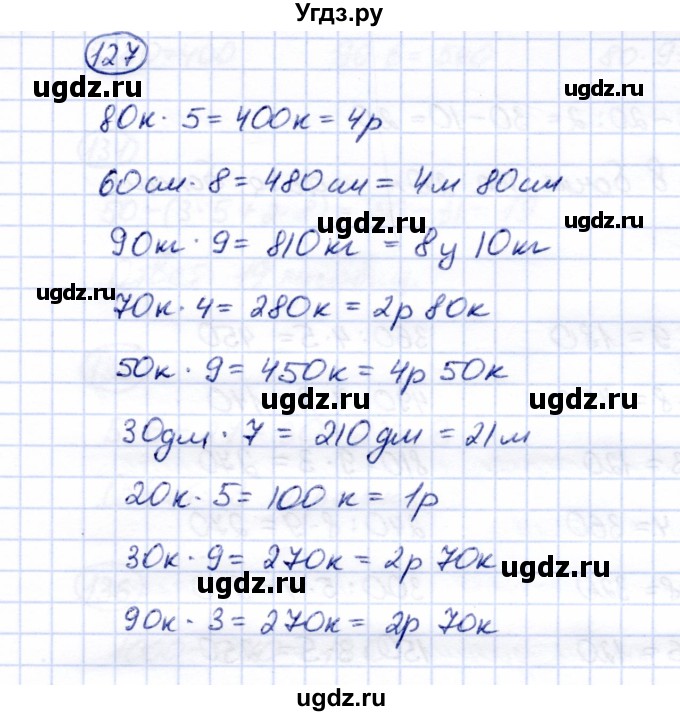 Угдз.ру
127
ugdz.ru
ugdz.ru
80к · 5 = 400к = 4р
60см · 8 = 480см = 4м 80см
ugdz.ru
90кг · 9 = 810кг = 8ц 10кг
ugdz.ru
70к · 4 = 280к = 2р 80к
50к · 9 = 450к = 4р 50к
ugdz.ru ugdz.ru
30дм · 7 = 210дм = 21м
20к · 5 = 100к = 1р
30к · 9 = 270к = 2р 70к
ugdz.ru ugdz.ru
90к · 3 = 270к = 2р 70к
ugdz.ru